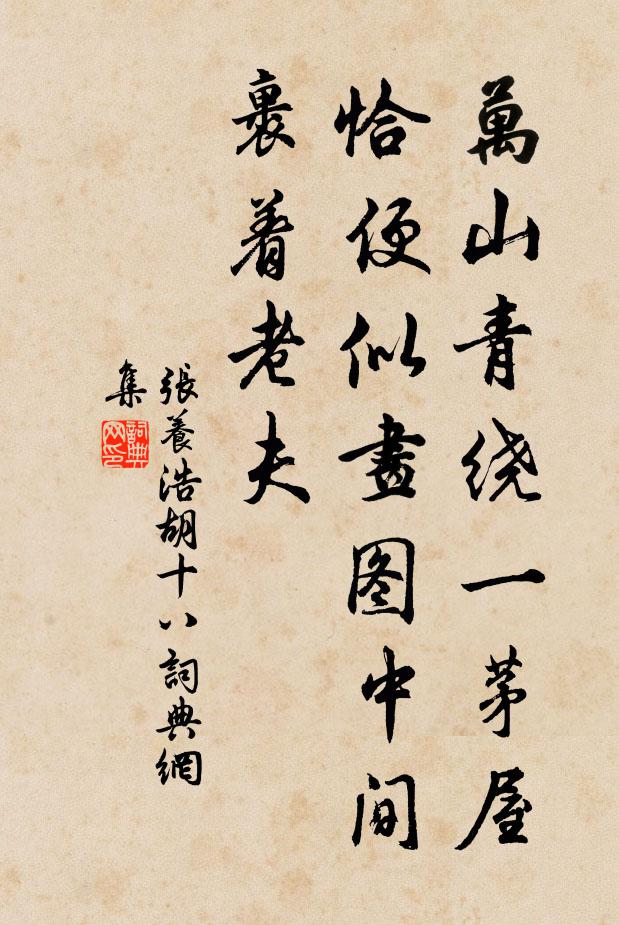 萬山青绕一茅屋
恰便似畫图中间
裹着老夫
張養浩胡十八詞典網
集
詞典网印